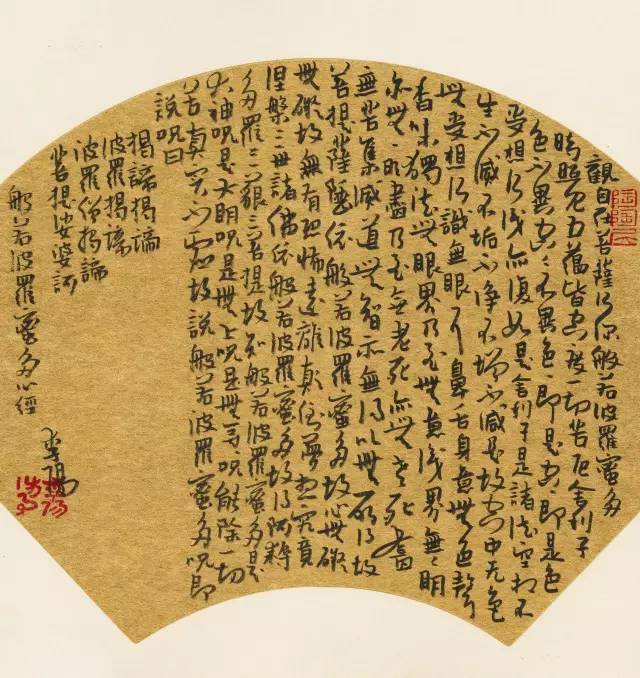 觀自在菩薩行深般若波羅蜜多
時照見五蘊皆空度一切苦厄舍利子
色不異空〻不異色〻即是空〻即是色
受想行識亦復如是舍利子是諸法空相不
生不滅不垢不淨不增不減是故空中无色
無受想行識無眼耳鼻舌身意無色聲
香味觸法無眼界乃至無意識界無〻明
亦無〻明盡乃至無老死亦無老死盡
無苦集滅道無智亦無得以無所得故
菩提薩埵依般若波羅蜜多故心無礙
無礙故無有恐怖遠離顛倒夢想究竟
涅槃三世諸佛依般若波羅蜜多故得阿耨
多羅三藐三菩提故知般若波羅蜜多是
大神呪是大明呪是無上呪是無等呪能除一切
苦真實不虛故說般若波羅蜜多呪即
說呪曰
揭諦揭諦
波羅揭諦
波羅僧揭諦
菩提娑婆訶
般若波羅蜜多心經